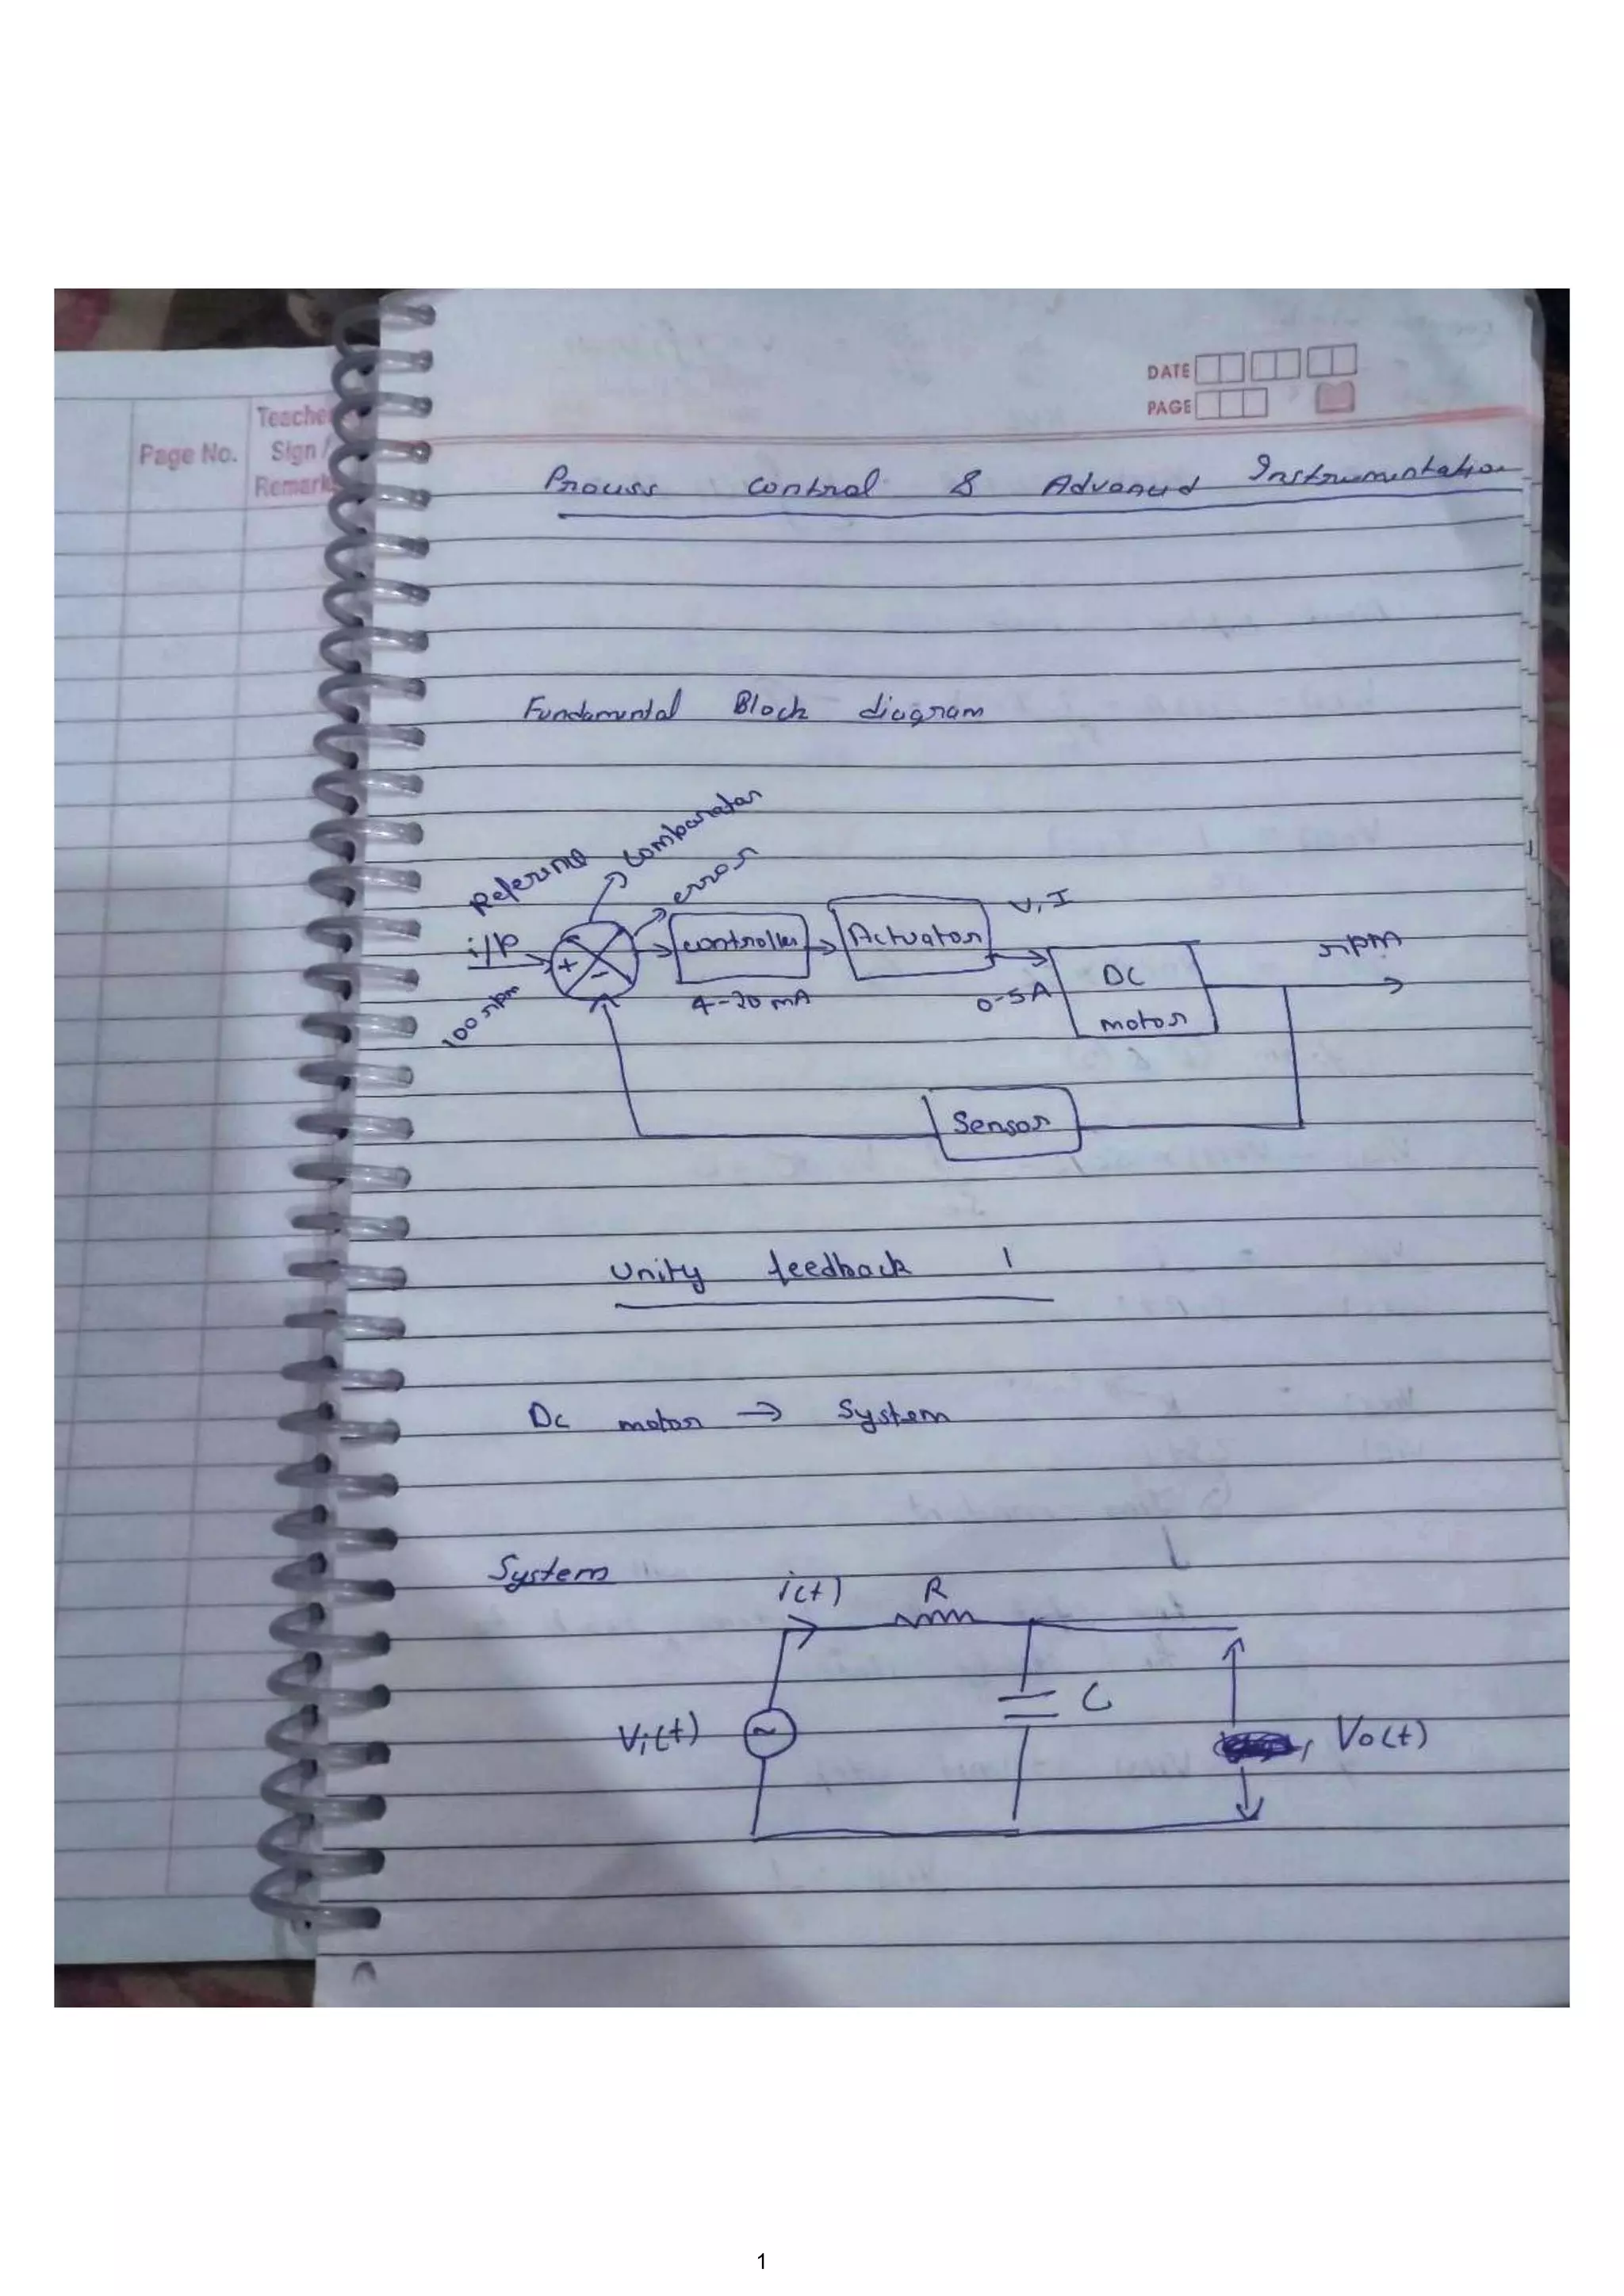 DATE
PAGE
Page No.
Teacher
Sign /
Remark
Process control & Advanced Instrumentation
Fundamental Block diagram
Reference
comparator
error
i/p
+
-
100 rpm
controller
4-20 mA
Actuator
V, I
0-5A
DC
motor
rpm
Sensor
Unity feedback 1
Dc motor → System
System
i(t)
R
C
Vi(t)
~
Vo(t)
1